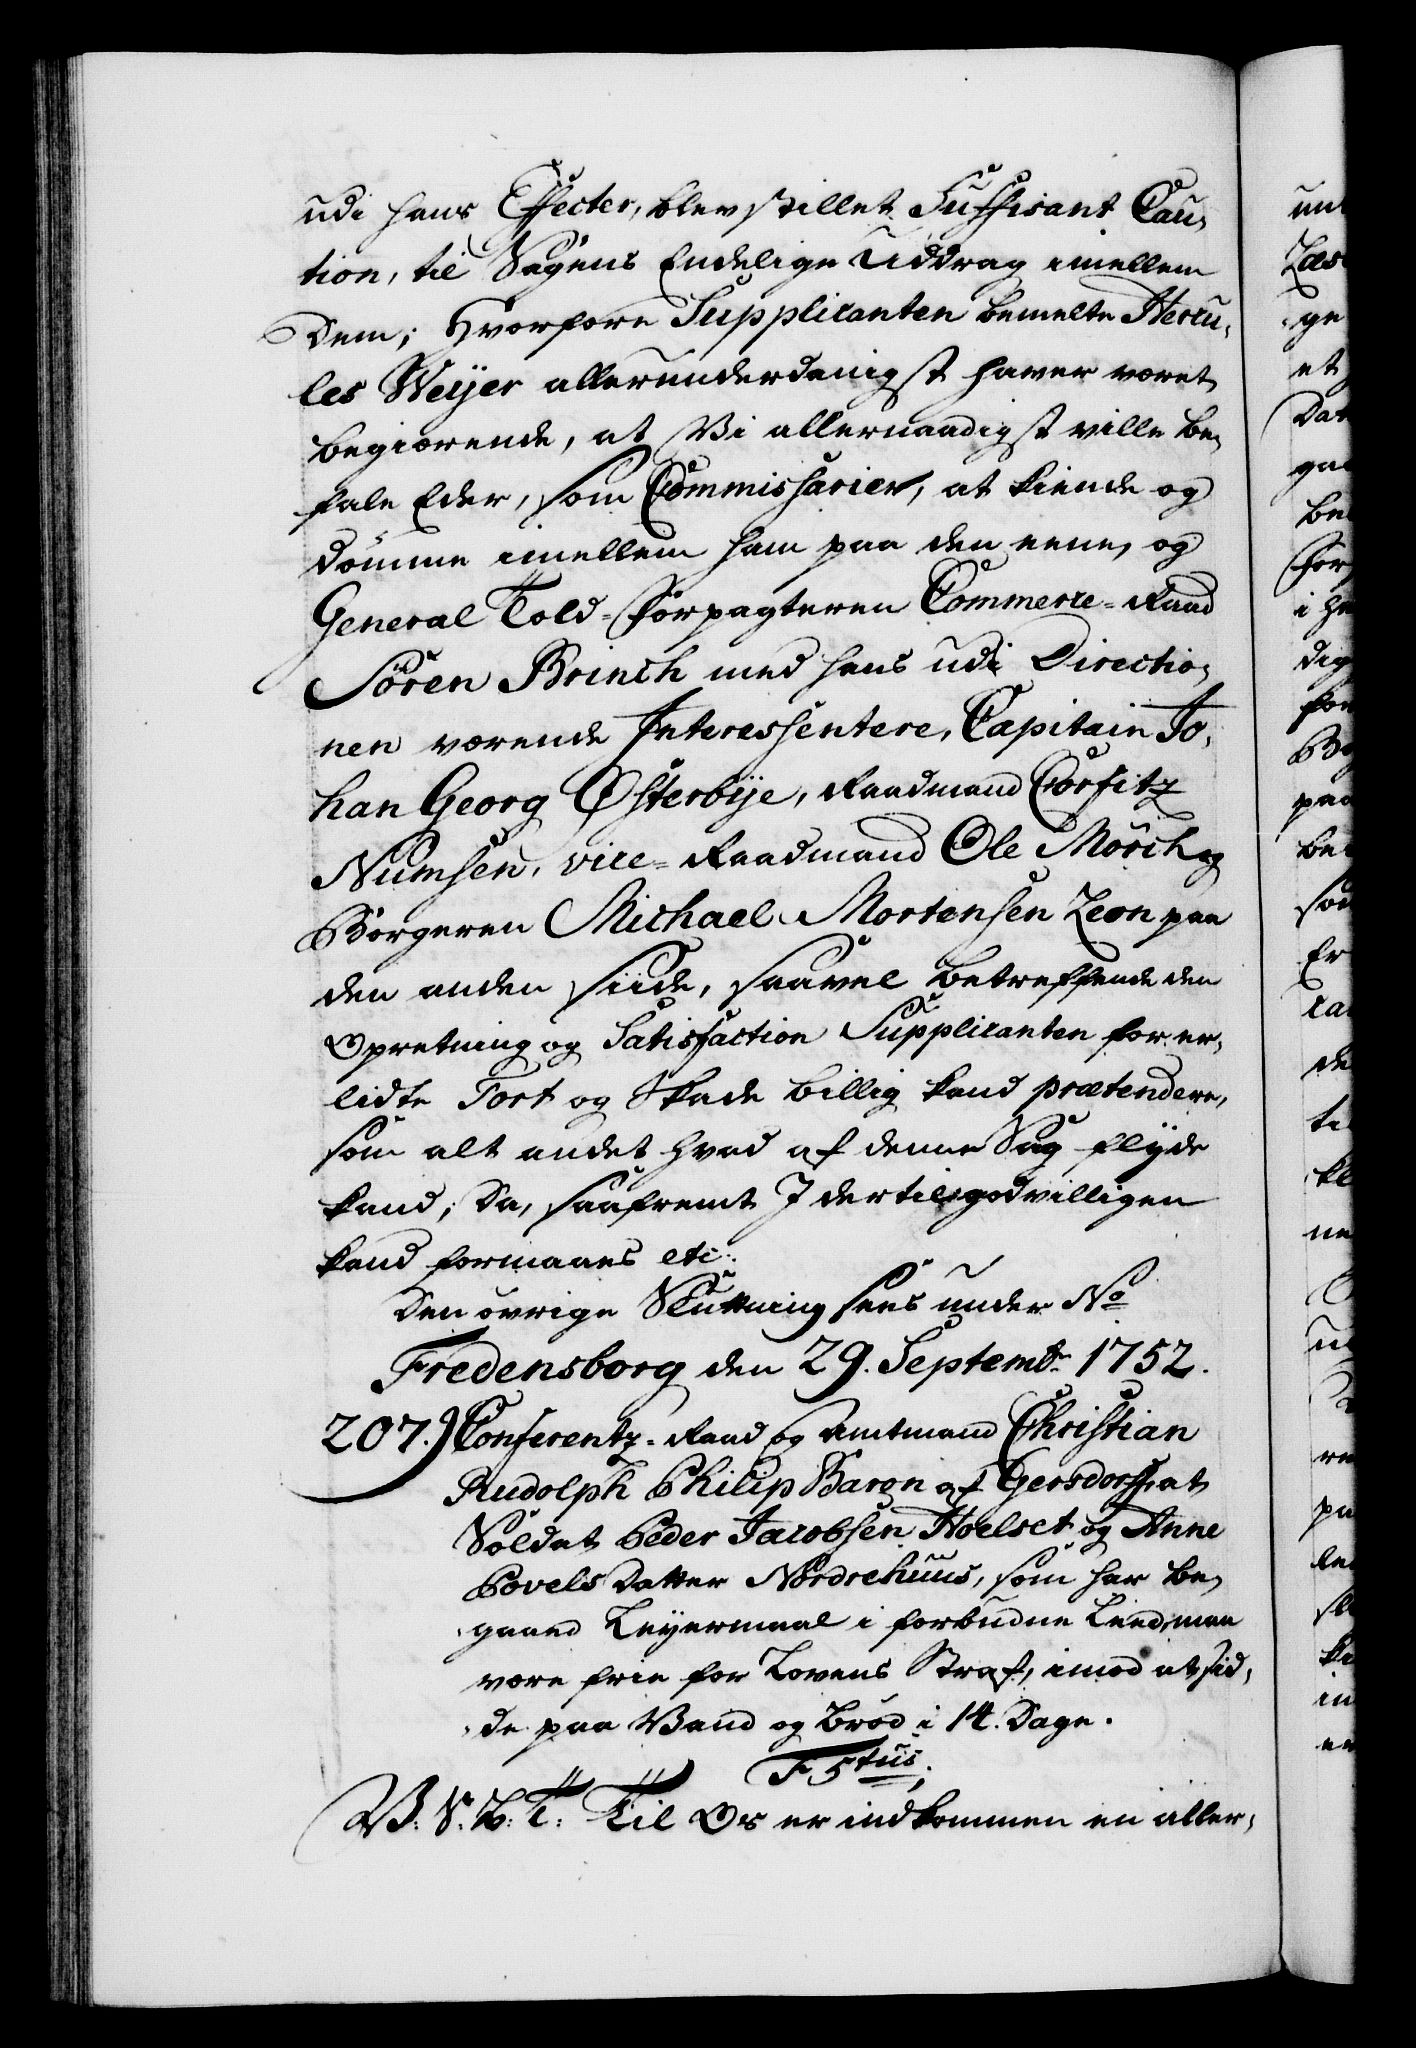 udi hans Effecter, blev stillet Suffisant Cau,
tion, til Sagens Endelige Uddrag imellem
Dem; Hvorfore Supplicanten bemelte Hercu,
les Weyer allerunderdanigst haver været
begiærende, at Vi allernaadigst ville be,
fale Eder, som Commissarier, at kiende og
dømme imellem ham paa den eene, og
General Told-Forpagteren Commerce-Raad
Søren Brinch med hans udi Directio,
nen værende Interessentere, Capitain Jo,
han Georg Østerbye, Raadmand Corfitz
Numsen, vice-Raadmand Ole Mørch og
Borgeren Michael Mortensen Leon paa
den anden siide, saavel betreffende den
Opretning og Satisfaction Supplicanten for er,
lidte Tort og Skade billig kand prætendere,
som alt andet hvad af denne Sag flyde
kand; Da, saafremt I dertil godvilligen
kand formaaes etc:
Den øvrige Sluttning sees under No
Fredensborg den 29. Septembr 1752.
207.) Conferentz-Raad og Amtmand Christian
Rudolph Philip Baron af Gersdorff, at
Soldat Peder Jacobsen Hoelset og Anne
Povels Datter Nordrehuus, som har be,
gaaed Leyermaal i forbudne Leed, maa
være frie for Lovens Straf, imod at sid,
de paa Vand og brød i 14. Dage.
F 5tus.
V. S. G. T: Til Os er indkommen en aller,